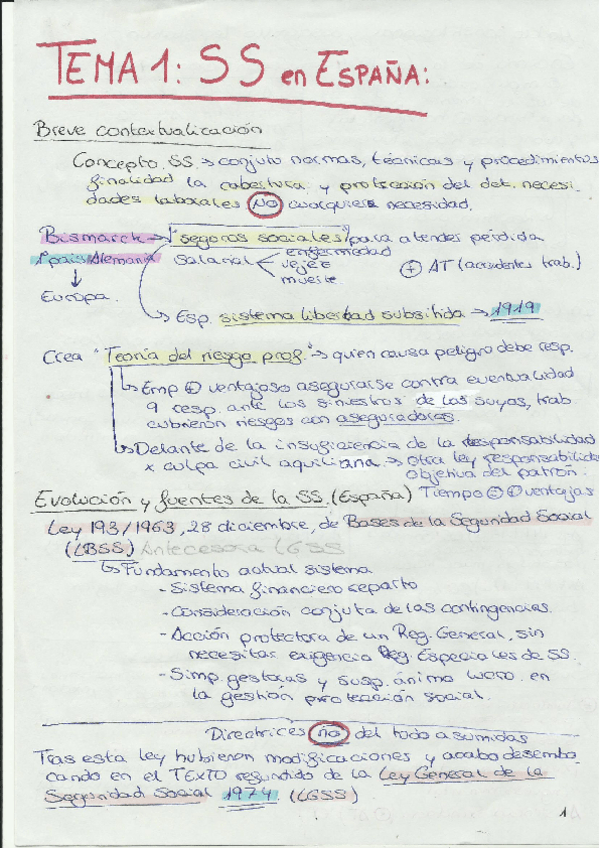 TEMA 1: SS en ESPAÑA:
Breve contextualización
Concepto SS → conjuto normas, técnicas y procedimientos
finalidad la cobertura y protección del det. necesi-
dades laborales NO cualquiera necesidad.
Bismarck → "segoros sociales" para atender pérdida
1º país Alemania salarial < enfermedad
vejez
muerte
⊕ AT (accidentes trab.)
↓
Europa.
→ Esp. sistema libertad subsitida → 1919
Crea "Teoría del riesgo prof." → quien causa peligro debe resp.
↳ Emp ⊕ ventajoso asegurarse contra eventualidad
q resp. ante los siniestros de los suyos, trab.
cubrieron riesgos con aseguradoras.
↳ Delante de la insuficiencia de la responsabilidad
x culpa civil aquiliana. → otra ley responsabilidad
objetiva del patrón.
Tiempo ⊖ ⊕ ventajas
Evolución y fuentes de la SS. (España)
Ley 193/1963, 28 diciembre, de Bases de la Seguridad Social
(LBSS) Antecesora LGSS
↳ Fundamento actual sistema
- Sistema financiero reparto
- Consideración conjuta de las contingencias.
- Acción protectora de un Reg. General, sin
necesitar exigencia Reg. Especiales de SS.
- Simp. gestoras y susp. ánimo lucro en
la gestión protección social.
Directrices NO del todo asumidas
Tras esta ley hubieron modificaciones y acabo desembo-
cando en el TEXTO refundido de la Ley General de la
Seguridad Social 1974 (LGSS)
1